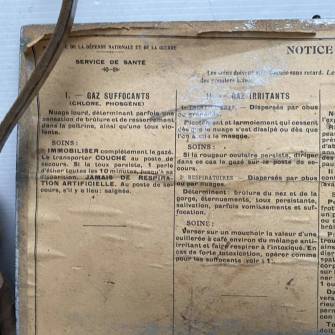 DE LA DÉFENSE NATIONALE ET DE LA GUERRE
SERVICE DE SANTÉ
NOTICE
Les soins doivent sans retard.
des premiers
I. — GAZ SUFFOCANTS
(CHLORE, PHOSGÈNE)
Nuage lourd, déterminant parfois une
sensation de brûlure et de resserrement
dans la poitrine, ainsi qu'une toux vio-
lente.
SOINS :
IMMOBILISER complètement le gazé.
Le transporter COUCHÉ au poste de
secours. Si la toux persiste, 1 perle
d'éther toutes les 10 minutes, jusqu'à sa
disparition. JAMAIS DE RESPIRA-
TION ARTIFICIELLE. Au poste de se-
cours, s'il y a lieu : saignée.
II. — GAZ IRRITANTS
1° — Dispersés par obus
ou grenades.
Picotement et larmoiement qui cessent
dès que le nuage s'est dissipé ou dès que
l'on a mis le masque.
SOINS :
Si la rougeur oculaire persiste, diriger
dans ce cas le gazé sur le poste de se-
cours.
2° RESPIRATOIRES — Dispersés par obus
ou par nuages.
Déterminent : brûlure du nez et de la
gorge, éternuements, toux persistante,
salivation, parfois vomissements et suf-
focation.
SOINS :
Verser sur un mouchoir la valeur d'une
cuillerée à café environ du mélange anti-
irritant et faire respirer à l'intoxiqué. En
cas de forte intoxication, opérer comme
pour les suffocants voir : 1°.